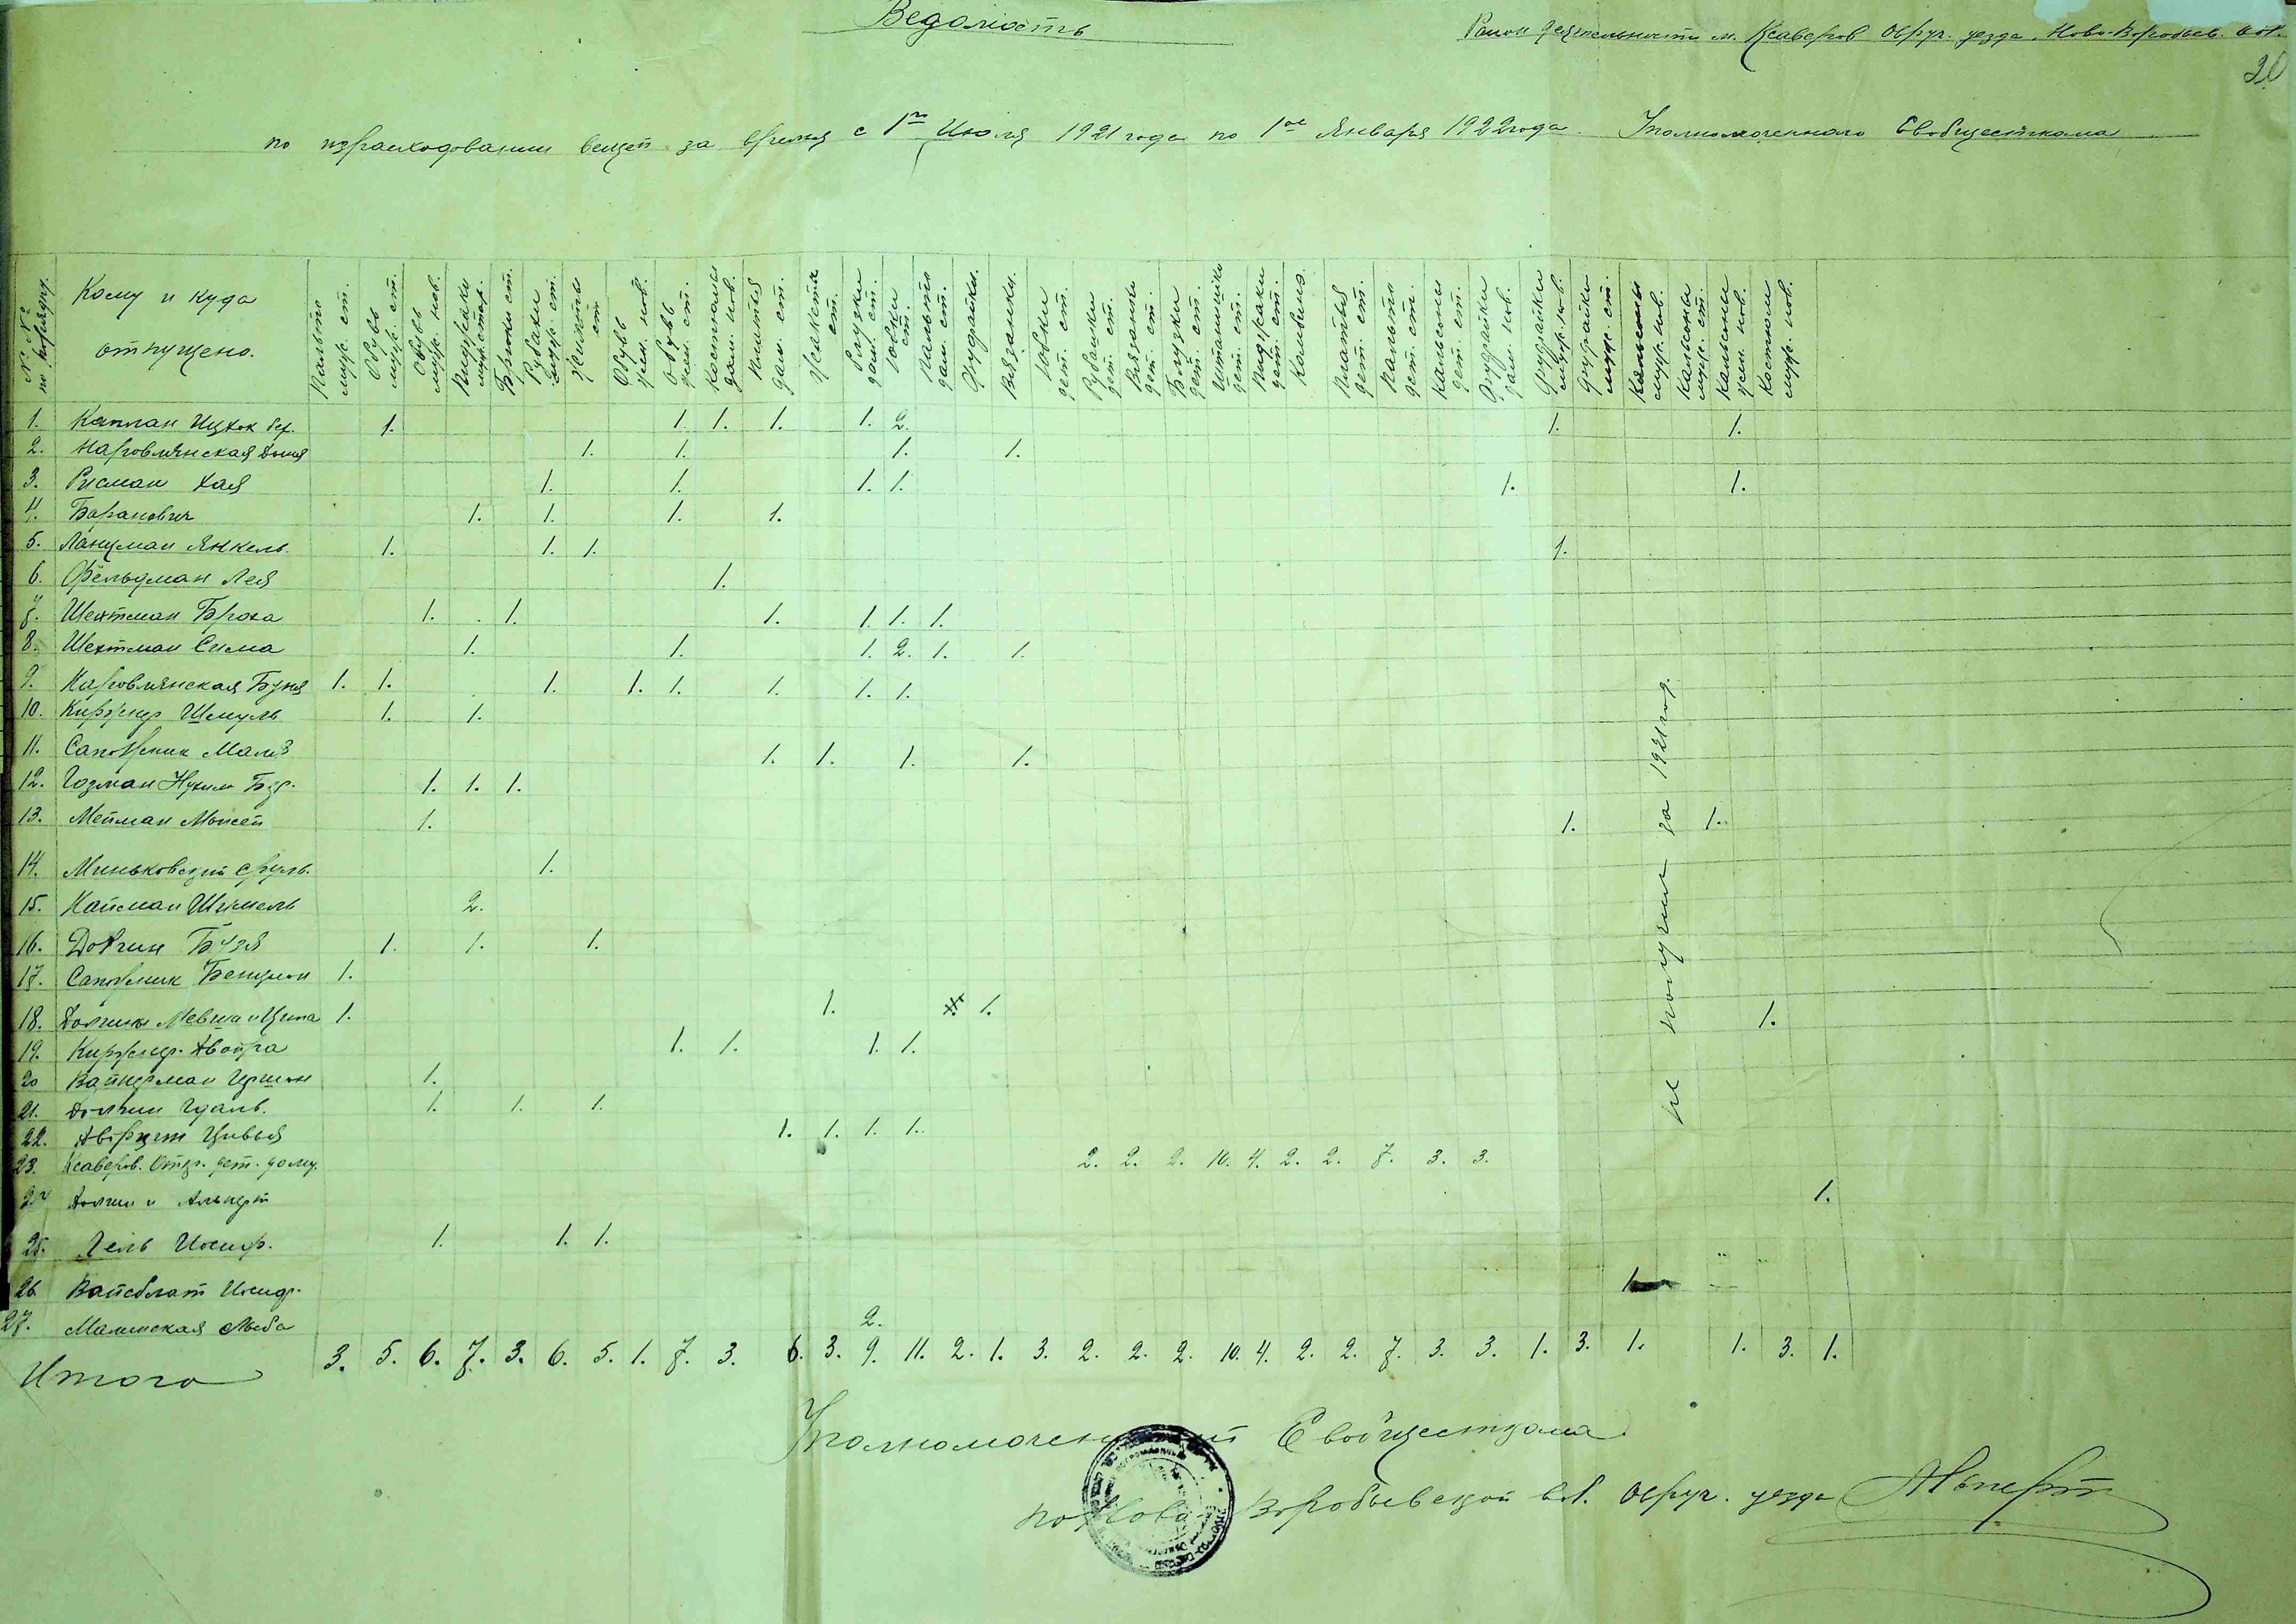 Ведомость
Район деятельности м. Ксаверов Овруч. уезда. Ново-Воробьев. вол.
20
по израсходовании вещей за время с 1го Июля 1921 года по 1ое Января 1922 года. Уполномоченного Евобщесткома
№ № по порядку.
Кому и куда отпущено.
Пальто муж. ст.
Обувь муж. ст.
Обувь муж. нов.
Пиджаки муж. стар.
Брюки ст.
Рубахи муж. ст.
Жилеты ст.
Обувь жен. нов.
Обувь жен. ст.
Костюмы дам. нов.
Платья дам. ст.
Жакеты ст.
Блузки дам. ст.
Юбки ст.
Пальто дам. ст.
Фуфайки.
Вязанки.
Юбки дет. ст.
Рубашки дет. ст.
Вязанки дет. ст.
Блузки дет. ст.
Штанишки дет. ст.
Пиджаки дет. ст.
Комбинэ.
Платья дет. ст.
Пальто дет. ст.
Кальсоны дет. ст.
Фуфайки дам. нов.
Фуфайки муж. нов.
Фуфайки муж. ст.
Кальсоны муж. нов.
Кальсоны муж. ст.
Кальсоны жен. нов.
Костюм муж. нов.
1. Каплан Ицхок 1. 1. 1. 1. 1. 2. 1. 1.
2. Наровлянская Доня 1. 1. 1. 1.
3. Рисман Хая 1. 1. 1. 1. 1. 1.
4. Баранович 1. 1. 1. 1.
5. Ланцман Янкель 1. 1. 1. 1.
6. Фельдман Лея 1.
7. Шехтман Броха 1. 1. 1. 1. 1. 1.
8. Шехтман Сима 1. 1. 1. 2. 1. 1.
9. Наровлянская Буня 1. 1. 1. 1. 1. 1. 1. 1.
10. Киржнер Шмуль 1. 1.
11. Сапожник Маля 1. 1. 1. 1.
12. Гозман Нухим Бер. 1. 1. 1.
13. Мейман Моисей 1. 1. 1.
14. Миньковский Сруль. 1.
15. Найман Шмель 2.
16. Долгин Бузя 1. 1. 1.
17. Сапожник Бенцион 1.
18. Долгины Мевша и Ципа 1. 1. 1. 1.
19. Киржнер Двойра 1. 1. 1. 1.
20 Вайнерман Гершон 1.
21. Долгин Гдаль. 1. 1. 1.
22. Авербух Цивья 1. 1. 1. 1.
23. Ксаверов. Откр. дет. дому. 2. 2. 2. 10. 4. 2. 2. 7. 3. 3.
24 Долгин и Альперт 1.
25. Гель Иосиф. 1. 1. 1.
26 Вайсблат Иосиф. 1.
27. Малинская Люба 2.
не получил за 1921 год.
Итого 3. 5. 6. 7. 3. 6. 5. 1. 7. 3. 6. 3. 9. 11. 2. 1. 3. 2. 2. 2. 10. 4. 2. 2. 7. 3. 3. 1. 3. 1. 1. 3. 1.
Уполномоченный Евобщесткома
по Ново-Воробьевской вол. Овруч. уезда Альперт